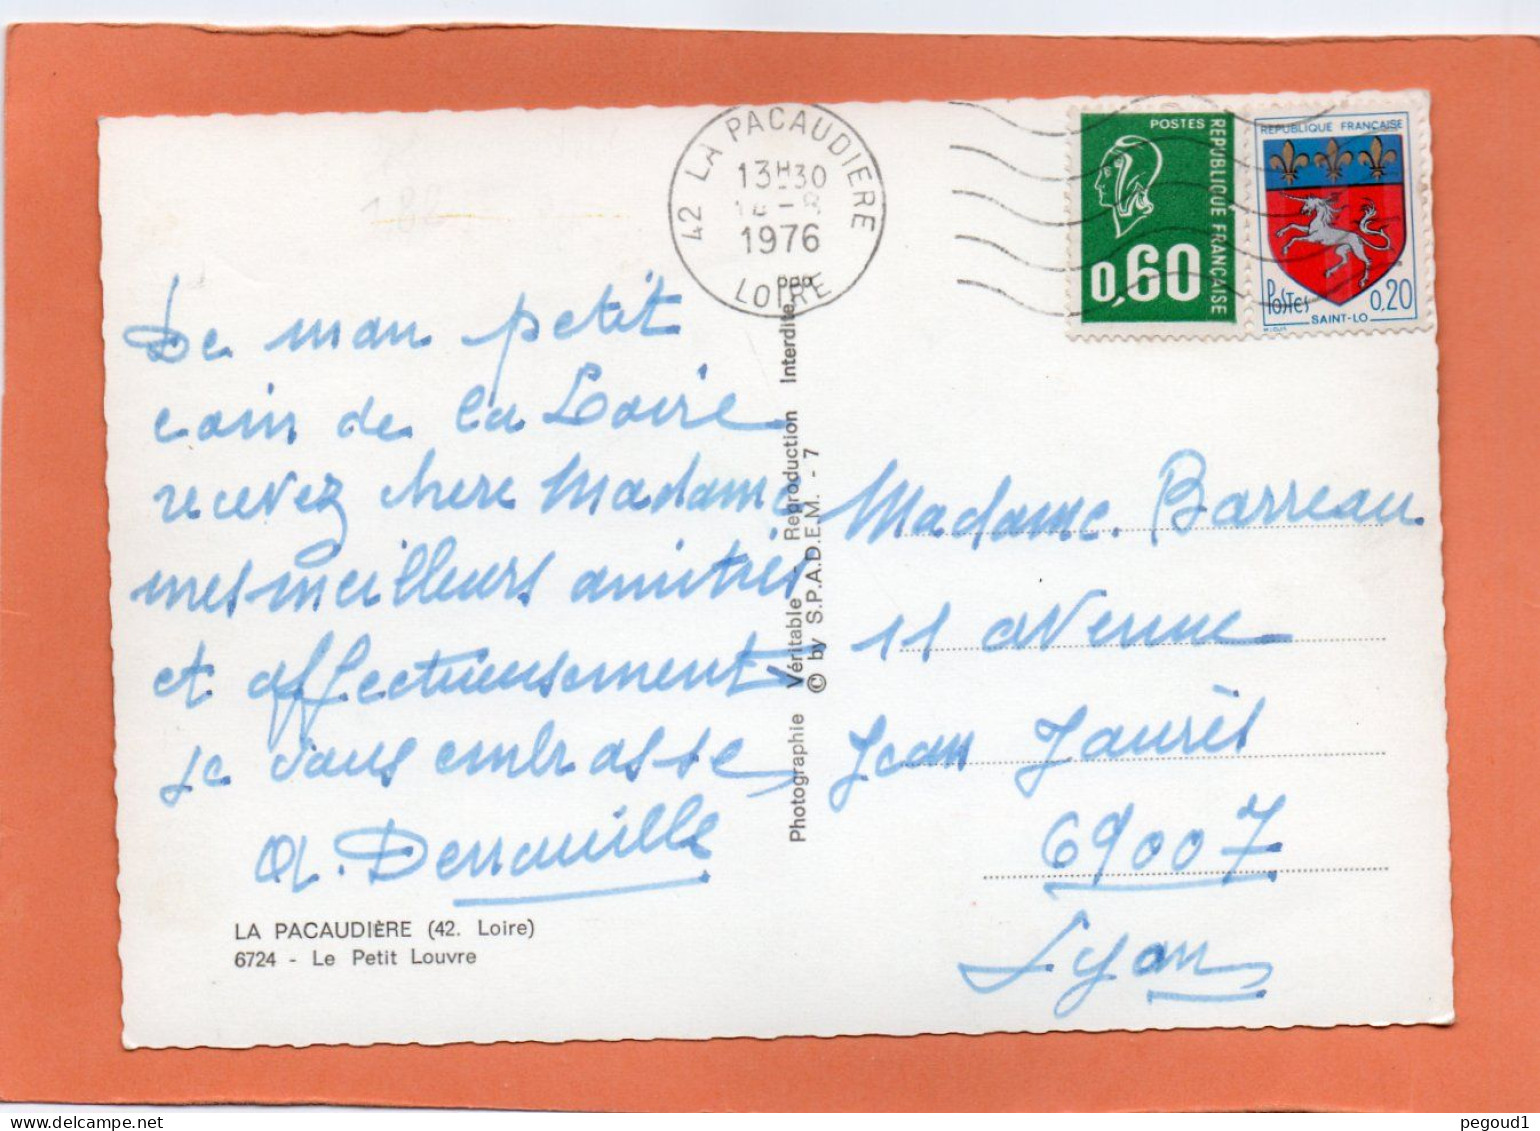 42 LA PACAUDIERE
13H30
1976
LOIRE
POSTES
REPUBLIQUE FRANCAISE
0,60
REPUBLIQUE FRANÇAISE
Postes 0,20
SAINT-LO
De mon petit
coin de la Loire
recevez chere Madame
mes meilleurs amitiés
et affectueusement
je vous embrasse
LA PACAUDIÈRE (42. Loire)
6724 - Le Petit Louvre
Photographie Véritable - Reproduction Interdite
© by S.P.A.D.E.M. - 7
Madame Barreau
11 avenue
Jean Jaurès
69007
Lyon
pegoud1